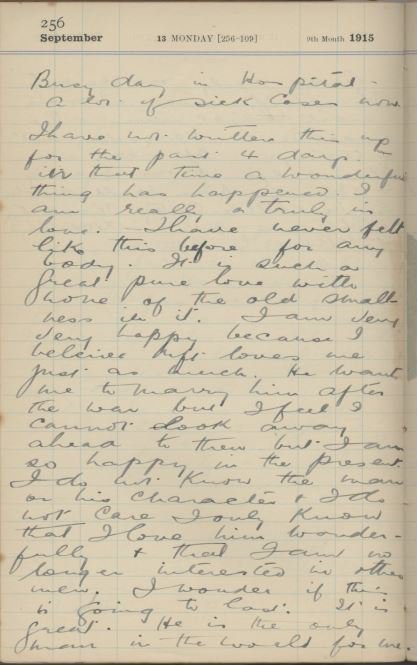 256
September 13 MONDAY [256-109] 9th Month 1915
Busy day in Hospital -
A lot of sick cases now
I have not written this up
for the past 4 days.
in that time a wonderful
thing has happened. I
am really & truly in
love. I have never felt
like this before for any
body. It is such a
great pure love with
none of the old small
ness in it. I am very
very happy because I
beleive he loves me
just as much. He wants
me to marry him after
the war but I feel I
cannot look away
ahead to then but I am
so happy in the present.
I do not know the man
or his character & I do
not care I only know
that I love him wonder-
fully & that I am no
longer interested in other
men. I wonder if this
is going to last. It is
great. He is the only
man in the world for me